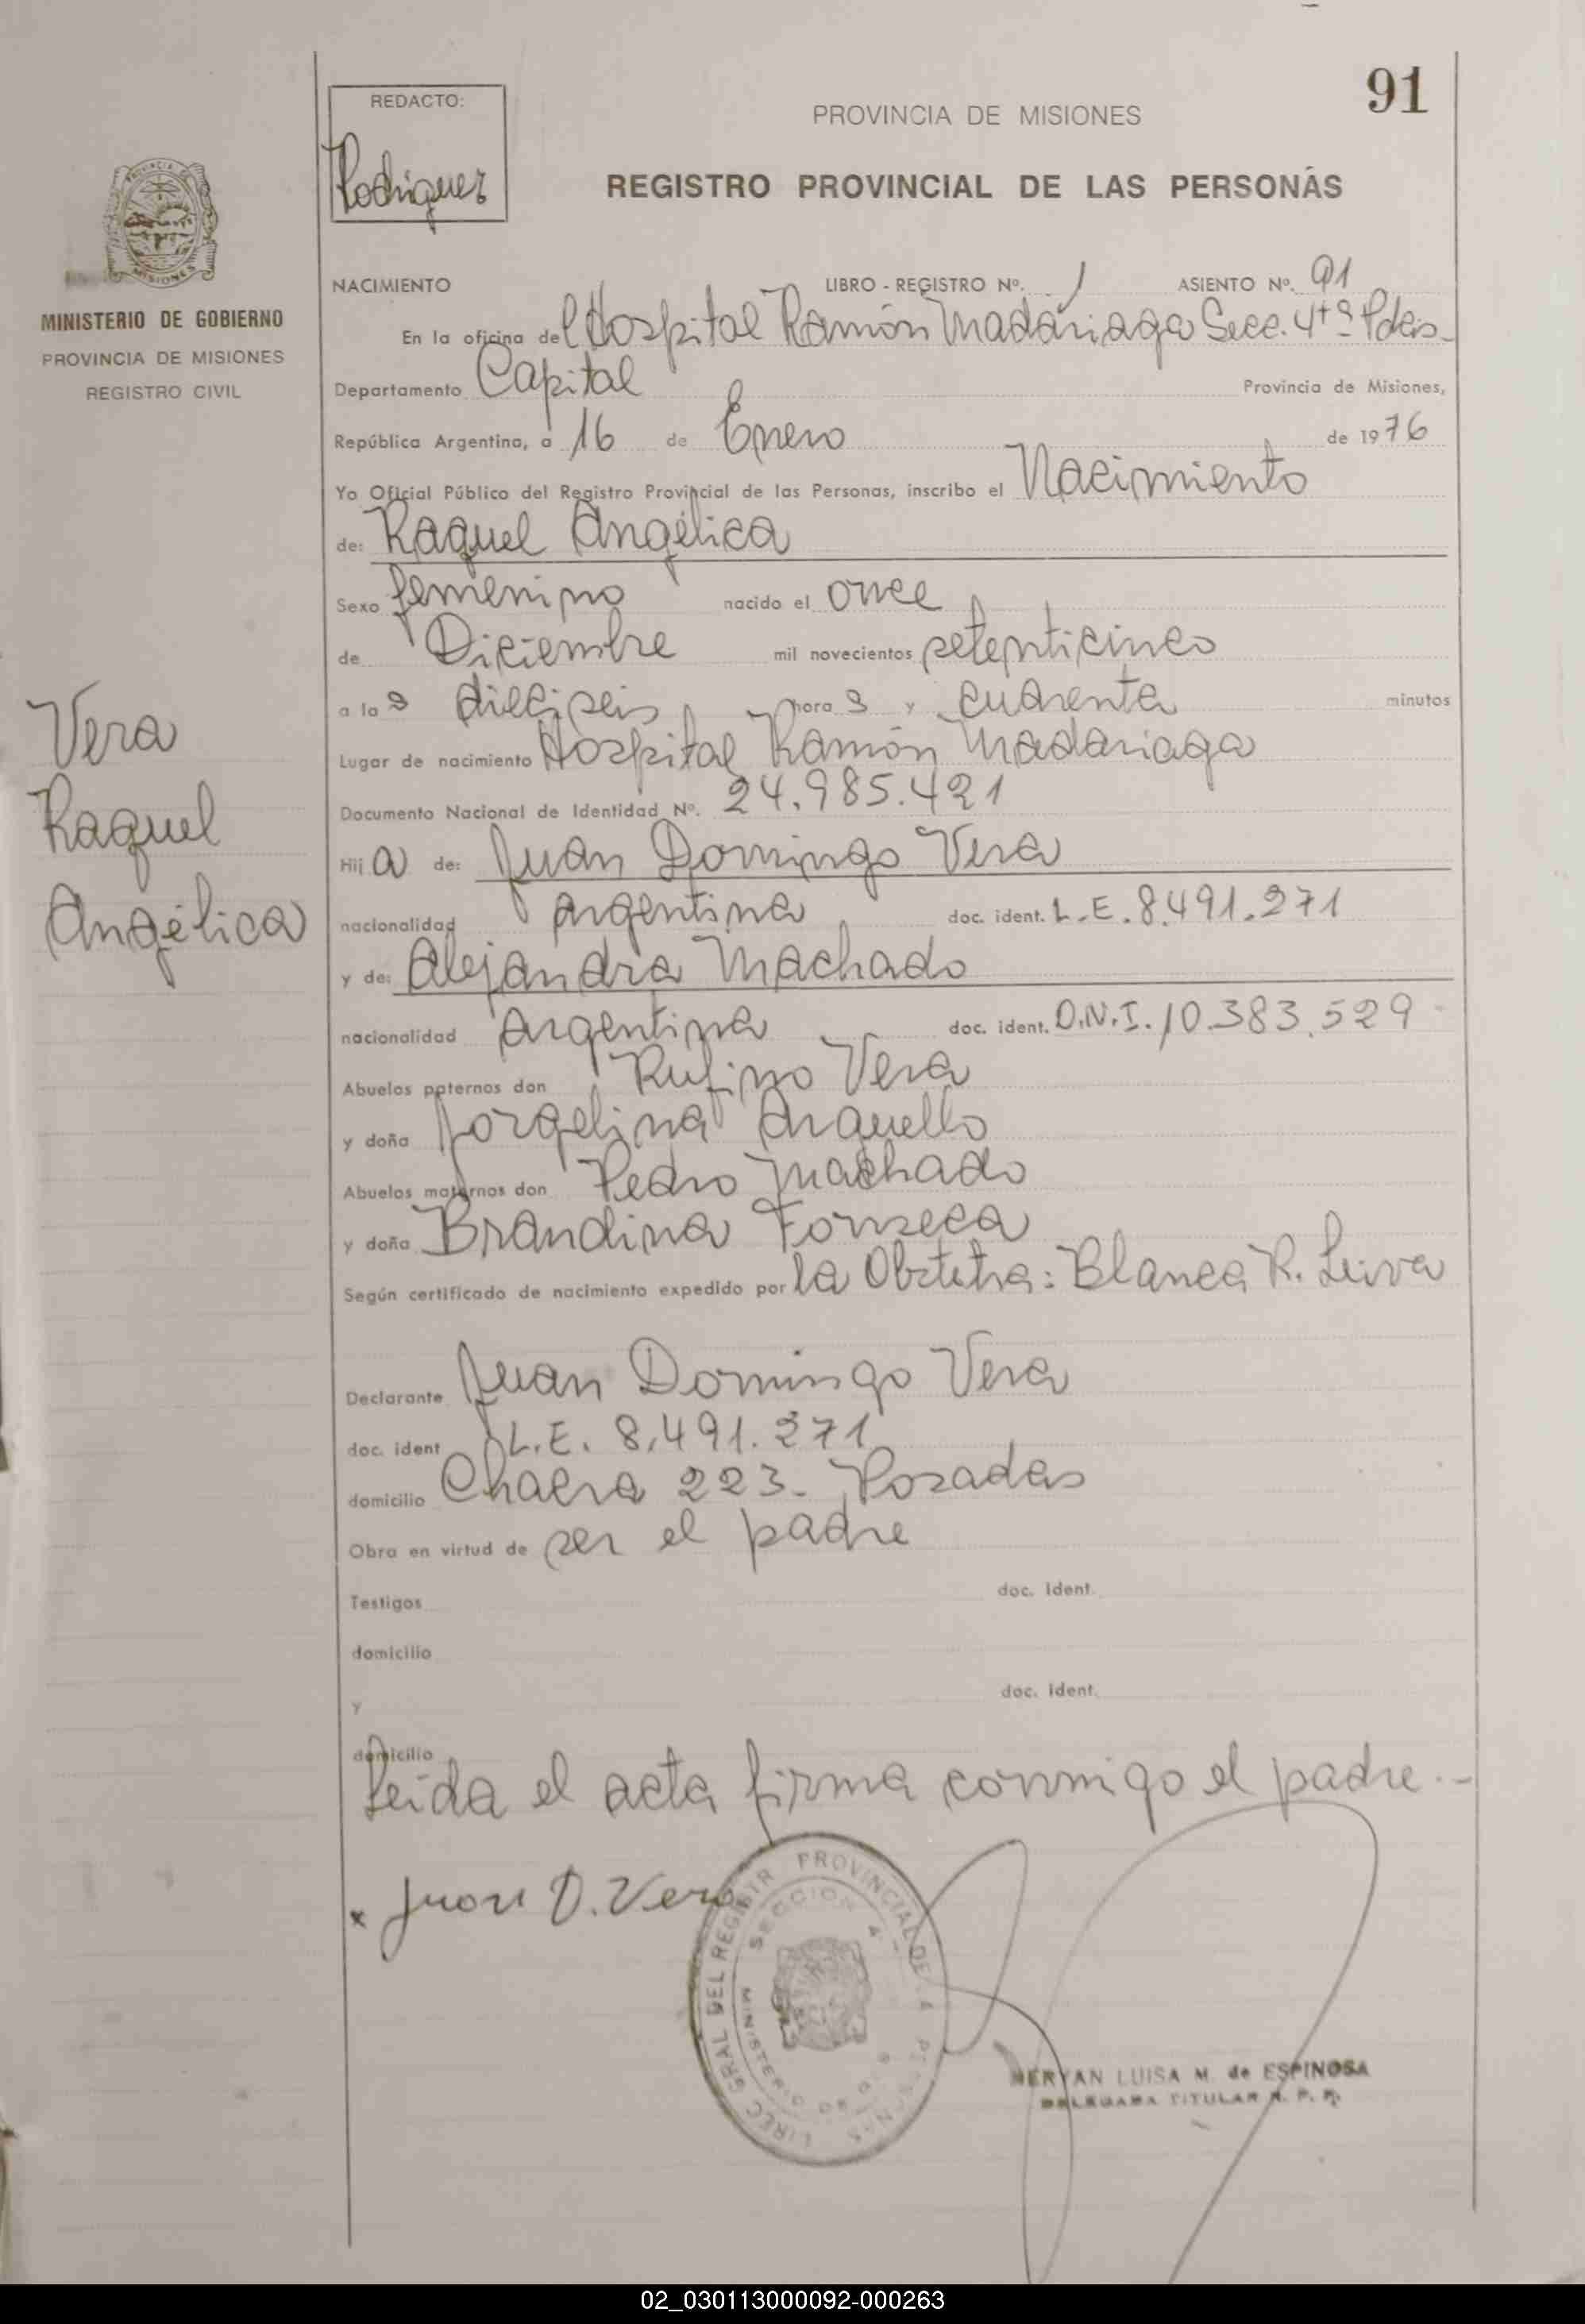 91
REDACTO:
Rodriguez
PROVINCIA DE MISIONES
REGISTRO PROVINCIAL DE LAS PERSONAS
MINISTERIO DE GOBIERNO
PROVINCIA DE MISIONES
REGISTRO CIVIL
NACIMIENTO LIBRO - REGISTRO Nº. 1 ASIENTO Nº. 91
En la oficina del Hospital Ramón Madariaga Secc. 4ta Pdas.
Departamento Capital Provincia de Misiones,
República Argentina, a 16 de Enero de 1976
Yo Oficial Público del Registro Provincial de las Personas, inscribo el Nacimiento
de: Raquel Angélica
Sexo femenino nacido el once
de Diciembre mil novecientos setenticinco
a las dieciseis horas y cuarenta minutos
Lugar de nacimiento Hospital Ramón Madariaga
Documento Nacional de Identidad Nº. 24.985.421
Hija de: Juan Domingo Vera
nacionalidad argentina doc. ident. L.E. 8.491.271
y de: Alejandra Machado
nacionalidad argentina doc. ident. D.N.I. 10.383.529
Abuelos paternos don Rufino Vera
y doña Jorgelina Arguello
Abuelos maternos don Pedro Machado
y doña Brandina Fonseca
Según certificado de nacimiento expedido por la Obstetra: Blanca R. Leiva
Declarante Juan Domingo Vera
doc. ident L.E. 8.491.271
domicilio Chacra 223. Posadas
Obra en virtud de ser el padre
Testigos doc. ident.
domicilio
y doc. ident.
domicilio
Leida el acta firma conmigo el padre.-
x Juan D. Vera
Vera
Raquel
Angélica
DIREC GRAL DEL REGISTR PROVINCIAL DE LA PERSONAS
SECCION 4
MINISTERIO DE
LUISA M. de ESPINOSA
DELEGADA TITULAR R. P. P.
02_030113000092-000263